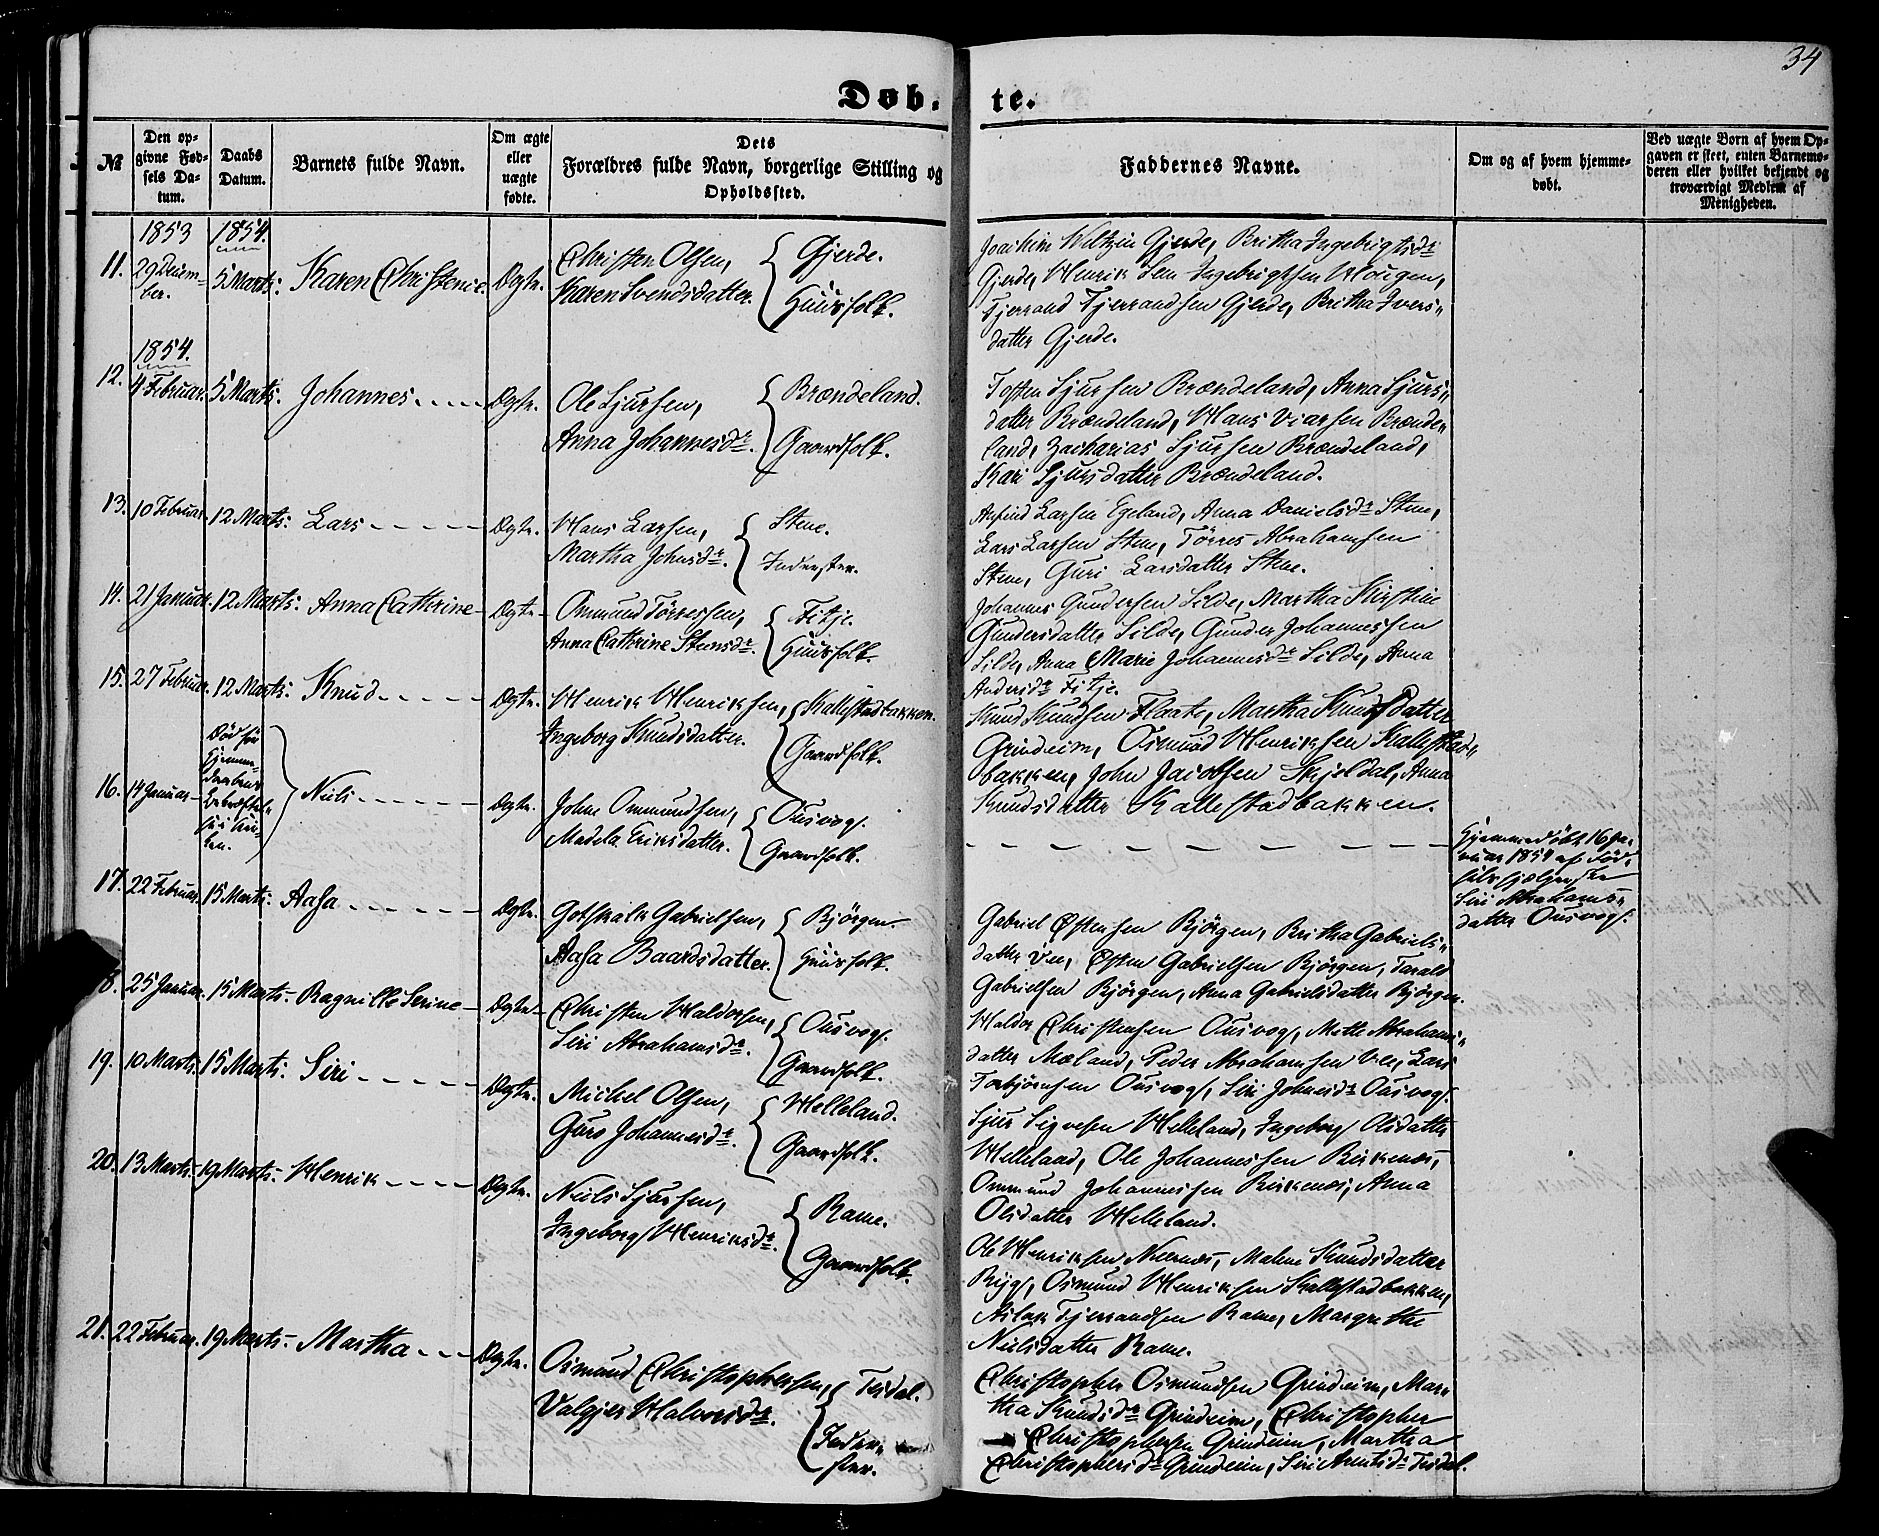 34
Døb-
te.
№
Den op-
givne Fød-
sels Da-
tum.
Daabs
Datum.
Barnets fulde Navn.
Om ægte
eller
uægte
fødte.
Dets
Forældres fulde Navn, borgerlige Stilling og
Opholdssted.
Faddernes Navne.
Om og af hvem hjemme-
døbt.
Ved uægte Børn af hvem Op-
gaven er skeet, enten Barnemo-
deren eller hvilket bekjendt og
troværdigt Medlem af
Menigheden.
1853
1854.
11. 29 Decem-
ber. 5 Marts. Karen Christence Ægte.
Christen Olsen, Gjerde.
Karen Svendsdatter. Huusfolk.
Joachim Weltzin Gjerde, Britha Ingebrigtsdr
Gjerde, Henrik Sem Ingebrigtsen Hougen,
Tjerrand Tjerrandsen Gjerde, Britha Ivers-
datter Gjerde.
1854.
12. 4 Februar. 5 Marts. Johannes Ægte.
Ole Sjursen, Brændeland.
Anna Johannesdr. Gaardfolk.
Tosten Sjursen Brændeland, Anna Sjurs-
datter Brændeland, Hans Viarsen Brænde-
land, Zacharias Sjursen Brændeland,
Kari Sjursdatter Brændeland.
13. 10 Februar. 12 Marts. Lars Ægte.
Hans Larsen, Stene.
Martha Johnsdr. Inderster.
Arfind Larsen Egeland, Anna Danielsdr Stene,
Lars Larsen Stene, Tørres Abrahamsen
Stene, Guri Larsdatter Stene.
14. 21 Januar. 12 Marts. Anna Cathrine Ægte
Ommund Tørressen, Fitje.
Anna Cathrine Steensdr. Huusfolk.
Johannes Gundersen Silde, Martha Kirstine
Gundersdatter Silde, Gunder Johannessen
Silde, Anna Marie Johannesdr Silde, Anna
Andersdr Fitje.
15. 27 Februar. 12 Marts. Knud Ægte.
Henrik Henriksen, Kallestadbakken.
Ingeborg Knudsdatter. Gaardfolk.
Knud Knudsen Flaate, Martha Knudsdatter
Grindeim, Osmund Henriksen Kallestad-
bakken, John Jacobsen Skjeldal, Anna
Knudsdatter Kallestadbakken.
16. 14 Januar Død før
Hjemme-
daabens
Bekræftel-
se i Kir-
ken. Niels Ægte.
Johne Ommundsen, Ousvog.
Madela Eriksdatter. Gaardfolk.
Hjemmedøbt 16 Ja-
nuar 1854 af Fød-
selshjælperske
Siri Abrahams-
datter Ousvog.
17. 22 Februar. 15 Marts. Aasa Ægte.
Gotskalk Gabrielsen, Bjørgen.
Aasa Baardsdatter. Huusfolk.
Gabriel Østensen Bjørgen, Britha Gabriels-
datter Øen, Østen Gabrielsen Bjørgen, Tarald
Gabrielsen Bjørgen, Anna Gabrielsdatter Bjørgen.
8. 25 Januar. 15 Marts. Ragnille Serine Ægte
Christen Haldorsen, Ousvog.
Siri Abrahamsdr. Gaardfolk.
Haldor Christensen Ousvog, Mette Abrahams-
datter Mæland, Peder Abrahamsen Øen, Lars
Torbjørnsen Ousvog, Siri Johnesdr Ousvog.
19. 10 Marts. 15 Marts. Siri Ægte.
Michel Olsen, Helleland.
Guro Johannesdr. Gaardfolk.
Sjur Sigvesen Helleland, Ingeborg Olsdatter
Helleland, Ole Johannessen Birkenæs,
Ommund Johannessen Birkenæs, Anna
Olsdatter Helleland.
20. 13 Marts. 19 Marts. Henrik Ægte.
Niels Sjursen, Rame.
Ingeborg Henriksdr. Gaardfolk.
Ole Henriksen Nernæs, Malene Knudsdatter
Ryg, Osmund Henriksen Kallestadbakken,
Aslak Tjerrandsen Rame, Margrethe
Nielsdatter Rame.
21. 22 Februar. 19 Marts. Martha Ægte.
Osmund Christophersen, Tesdal.
Valgjer Halvorsdr. Inder-
ster.
Christopher Osmundsen Grindeim, Mar-
tha Knudsdr Grindeim, Christopher
Christophersen Grindeim, Martha
Christophersdr Grindeim, Siri Arntsdr Tesdal.